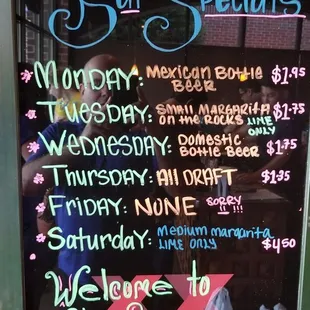 Bar Specials
Monday: Mexican Bottle Beer $1.95
Tuesday: Small Margarita on the Rocks Lime only $1.75
Wednesday: Domestic Bottle Beer $1.75
Thursday: All Draft $1.35
Friday: None Sorry !! !!!
Saturday: Medium margarita Lime only $4.50
Welcome to